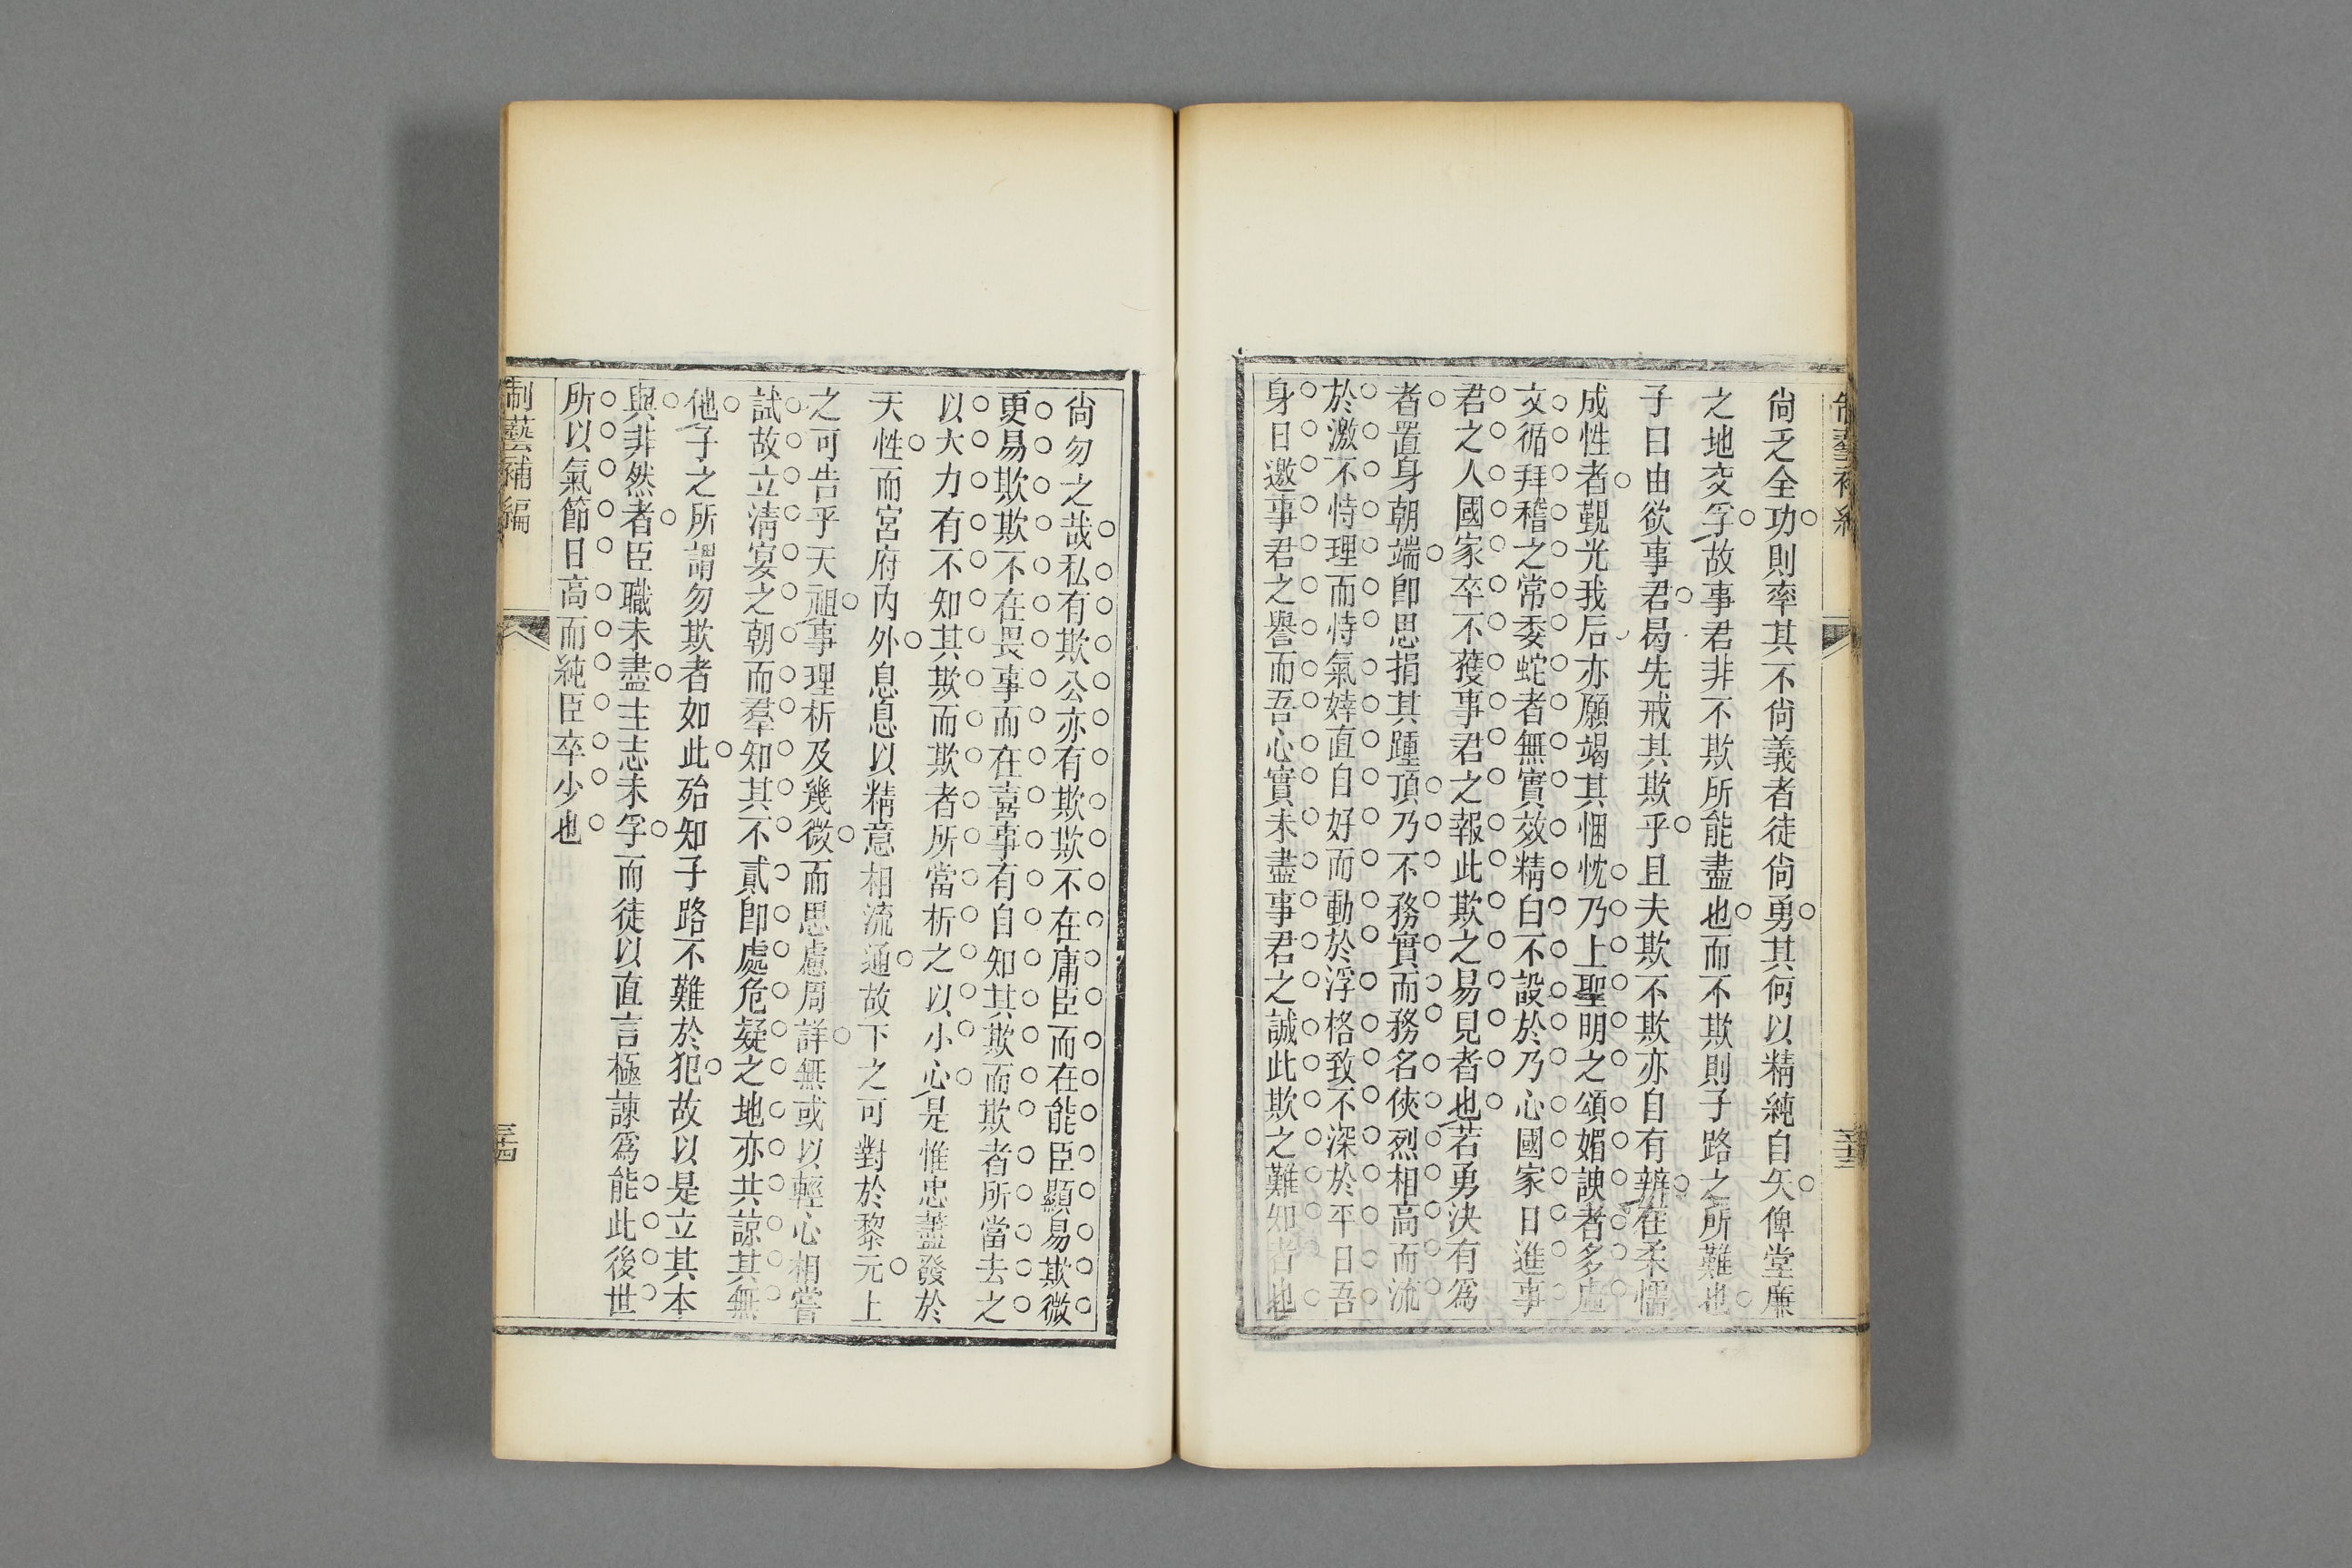 尙乏全功則率其不尙義者徒尙勇其何以精純自矢俾堂廉
之地交孚故事君非不欺所能盡也而不欺則子路之所難也
子曰由欲事君曷先戒其欺乎且夫欺不欺亦自有辨在柔懦
成性者覲光我后亦願竭其悃忱乃上聖明之頌媚諛者多虛
文循拜稽之常委蛇者無實效精白不設於乃心國家日進事
君之人國家卒不獲事君之報此欺之易見者也若勇決有爲
者置身朝端卽思捐其踵頂乃不務實而務名俠烈相高而流
於激不恃理而恃氣婞直自好而動於浮格致不深於平日吾
身日邀事君之譽而吾心實未盡事君之誠此欺之難知者也
制藝補編
尙勿之哉私有欺公亦有欺欺不在庸臣而在能臣顯易欺微
更易欺欺不在畏事而在喜事有自知其欺而欺者所當去之
以大力有不知其欺而欺者所當析之以小心是惟忠藎發於
天性而宮府內外息息以精意相流通故下之可對於黎元上
之可告乎天祖事理析及幾微而思慮周詳無或以輕心相嘗
試故立淸宴之朝而羣知其不貳卽處危疑之地亦共諒其無
他子之所謂勿欺者如此殆知子路不難於犯故以是立其本
與非然者臣職未盡主志未孚而徒以直言極諫爲能此後世
所以氣節日高而純臣卒少也
制藝補編
三十四